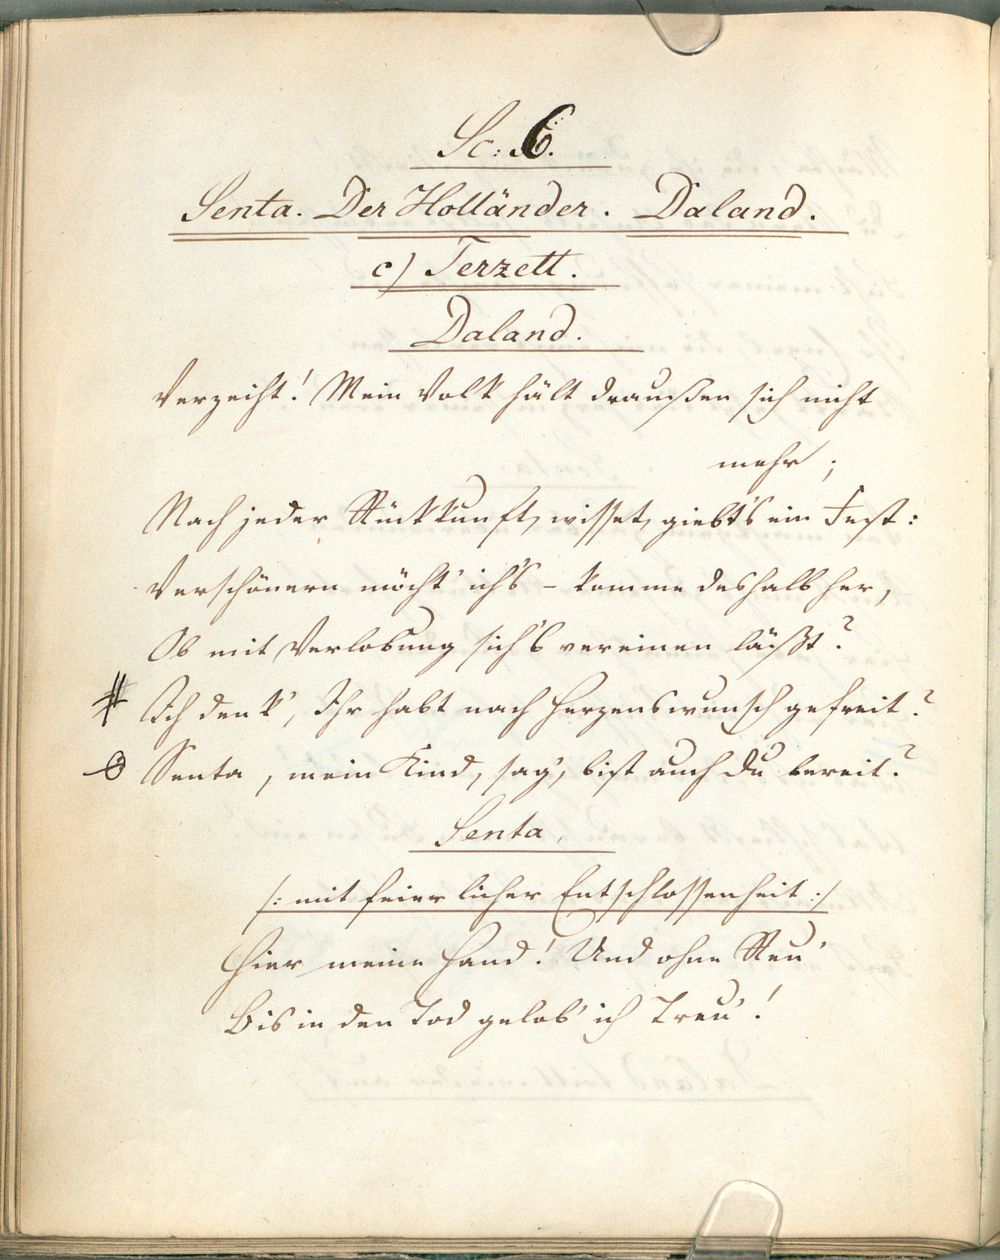 Sc: 6.
Senta. Der Holländer. Daland.
c) Terzett.
Daland.
Verzeiht! Mein Volk hält draußen sich nicht
mehr;
Nach jeder Rückkunft, wisset, giebt's ein Fest:
Verschönern möcht' ich's – komme deshalb her,
Ob mit Verlobung sich's vereinen läßt?
# Ich denk', Ihr habt nach Herzenswunsch gefreit?
Senta, mein Kind, sag', bist auch du bereit?
Senta.
/: mit feierlicher Entschlossenheit :/
Hier meine Hand! Und ohne Reu'
Bis in den Tod gelob' ich Treu'!